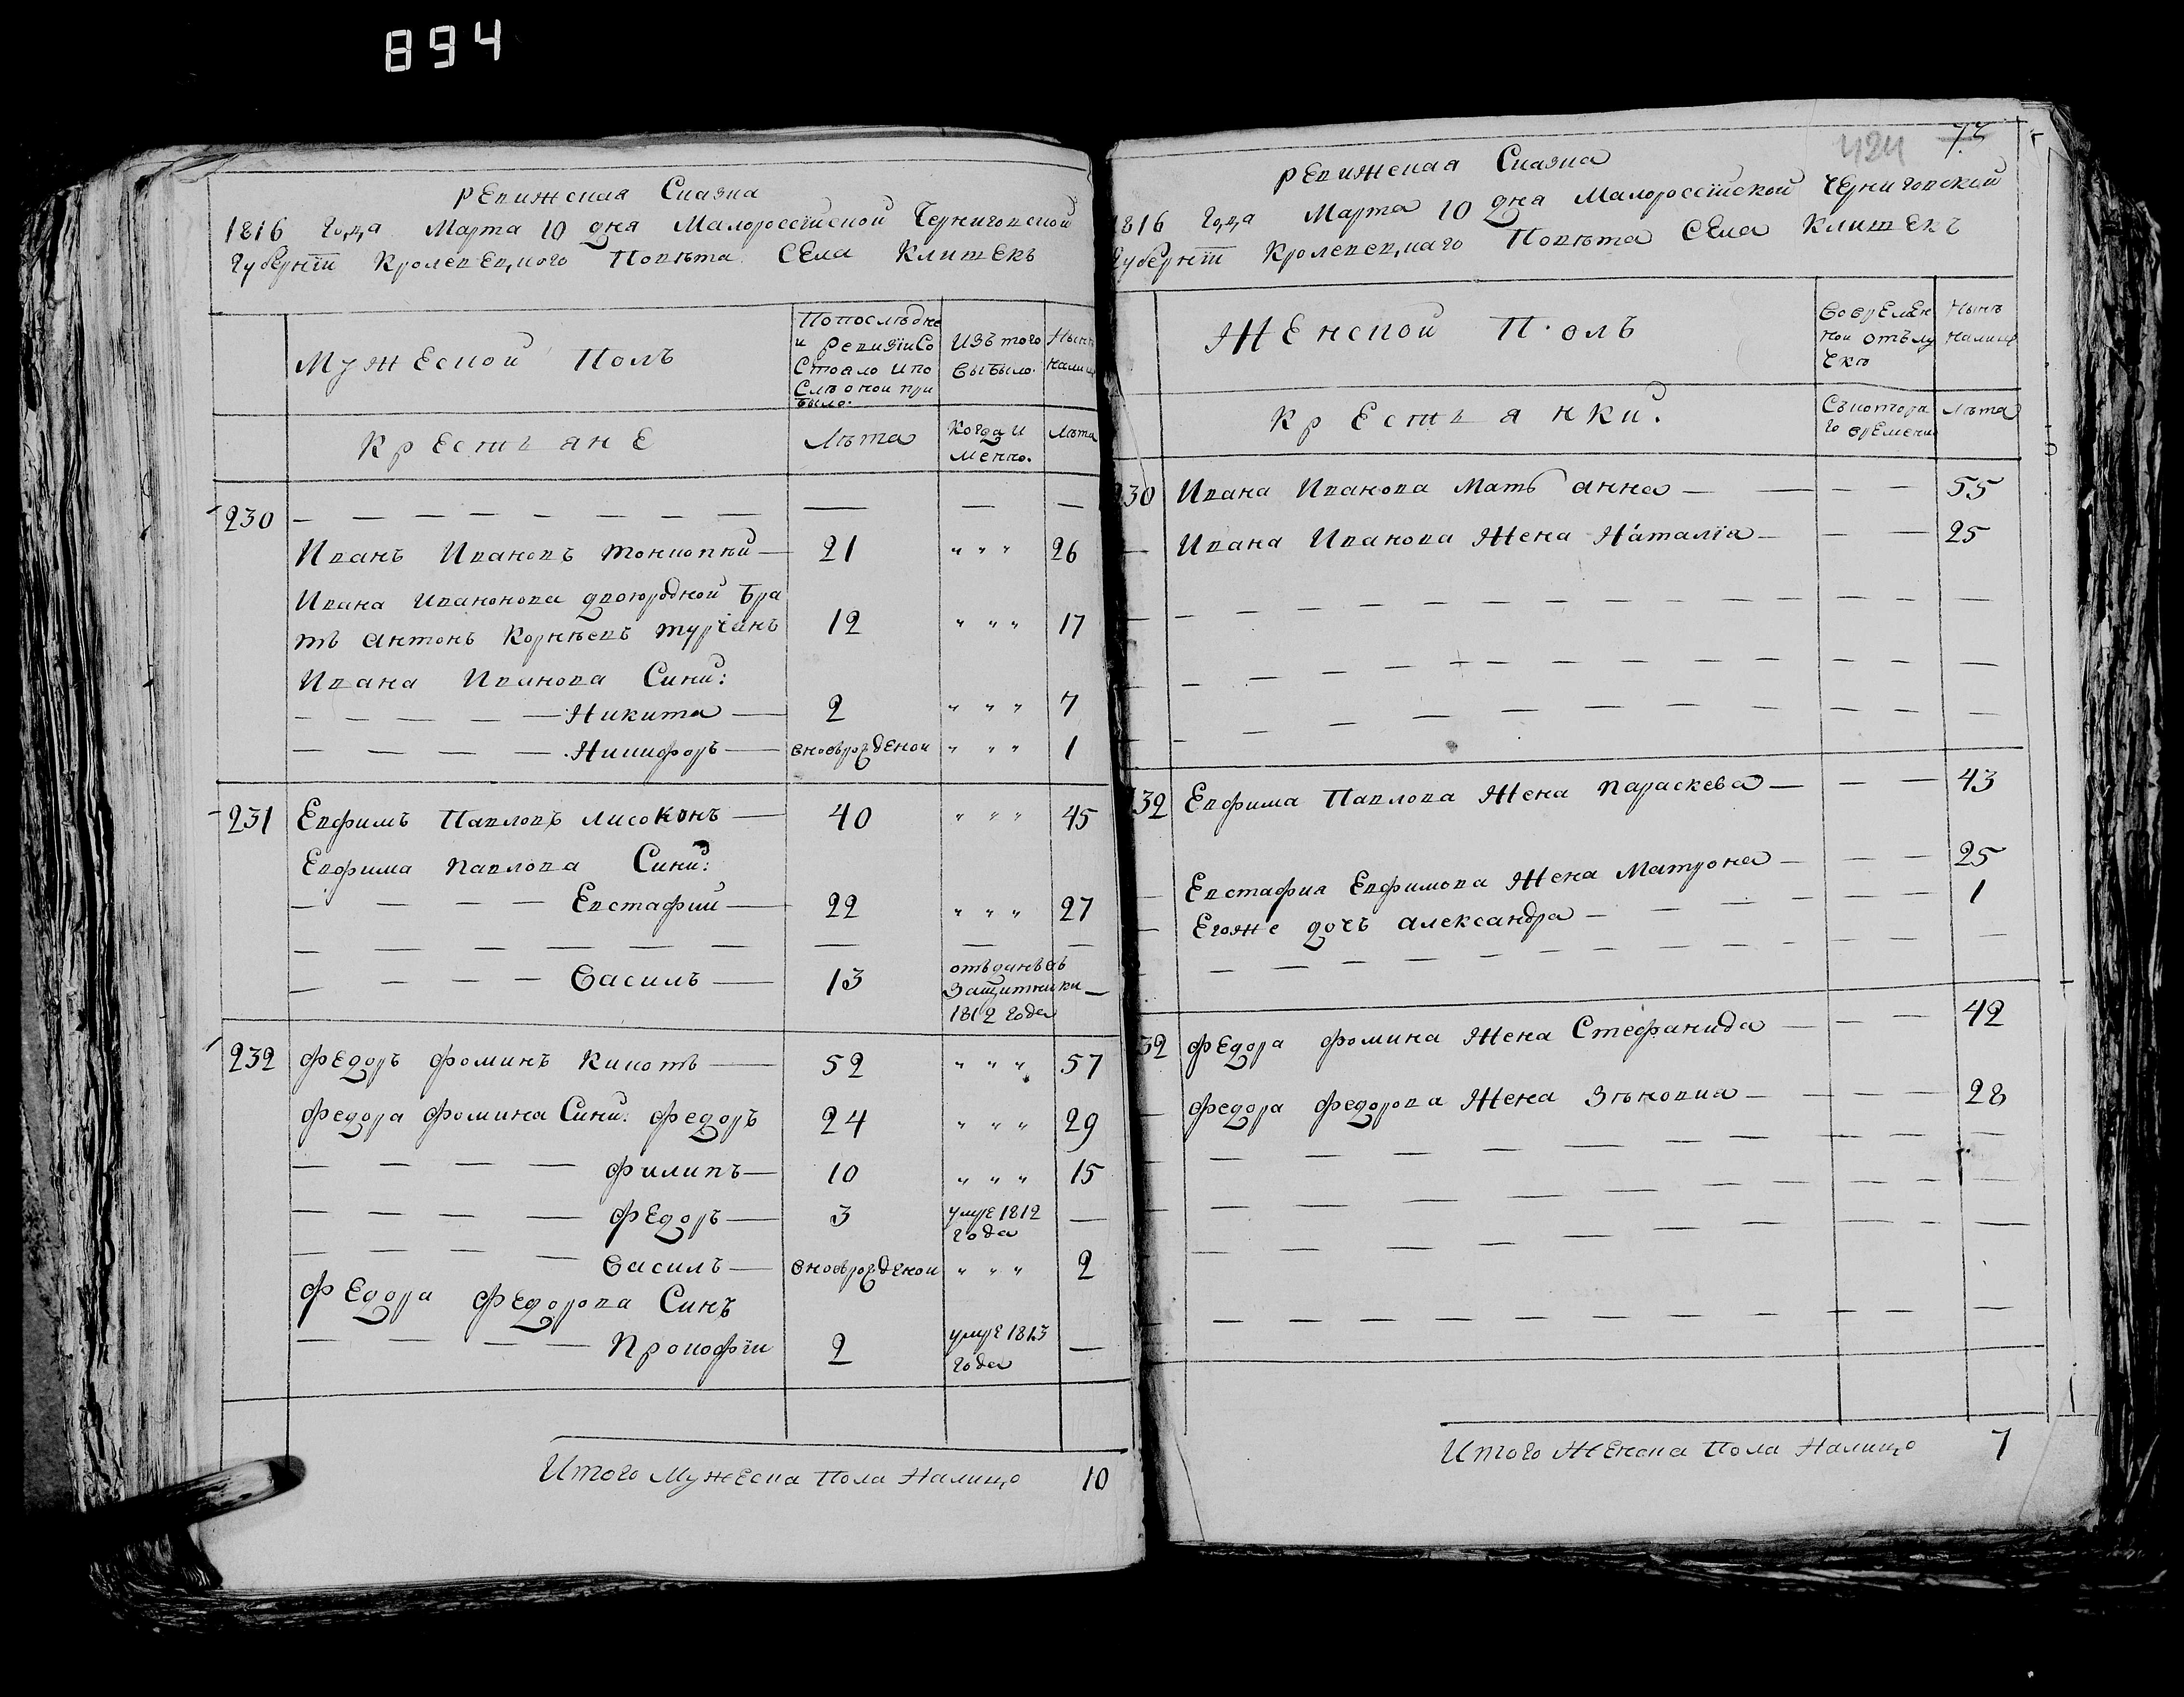 894
Ревижская Сказка
1816 Года Марта 10 дня Малоросеїйской Черниговской
Губернїи Кролевецкого Повѣта Села Клишекъ
Мужеской Полъ
По последне
и ревизїи Со
Стояло и по
Слѣ оной при
было.
Изъ того
выбыло.
Нынѣ
налицо
Крестьяне
Лѣта
Когда и
менно.
Лѣта
230 — — — — — — — — — — —
Иванъ Ивановъ — 21 " " " 26
Ивана Иванонова двоюродной бра
тъ Антонъ Корнѣевъ Турчинъ 12 " " " 17
Ивана Иванова Сини:
— — — — — Никита — 2 " " " 7
— — — — — Никифоръ — вноврожденои " " " 1
231 Евфимъ Павловъ Лисоконъ — 40 " " " 45
Евфима Павлова Сини:
— — — — Евстафий — 22 " " " 27
— — — — — — — — — —
— — — — Василь — 13 отъданъ въ
Защитники —
1812 года
232 Федоръ Фоминъ Кикоть — 52 " " " 57
Федора Фомина Сини: Федоръ 24 " " " 29
— — — — Филипъ — 10 " " " 15
— — — — Федоръ — 3 умре 1812 —
года
— — — — Василь — вноврожденои " " " 2
Федора Федорова Синъ
— — — — Прокофїи 2 умре 1813 —
года
Итого Мужеска Пола Налицо 10
424 77
Ревижская Сказка
1816 Года Марта 10 дня Малоросеїйской Черниговской
Губернїи Кролевецкаго Повѣта Села Клишекъ
Женской Полъ
Во времен
нои отълу
чкѣ
Нынѣ
налицо
Крестьянки.
Съ котора
го времени
Лѣта
230 Ивана Иванова Мать Анна — — — 55
— Ивана Иванова Жена Наталїя — — — 25
— — — — — — — — — — — — —
— — — — — — — — — — — — —
— — — — — — — — — — — —
232 Евфима Павлова Жена Параскева — — — 43
— Евстафия Евфимова Жена Матрона — — — 25
— Егояже дочъ Александра — — — — — — 1
— — — — — — — — — — — —
232 Федора Фомина Жена Стефанида — — — 42
— Федора Федорова Жена Зѣновиа — — — 28
— — — — — — — — — — — — —
— — — — — — — — — — — —
— — — — — — — — — — — —
— — — — — — — — — — — —
Итого Женска Пола Налицо 7